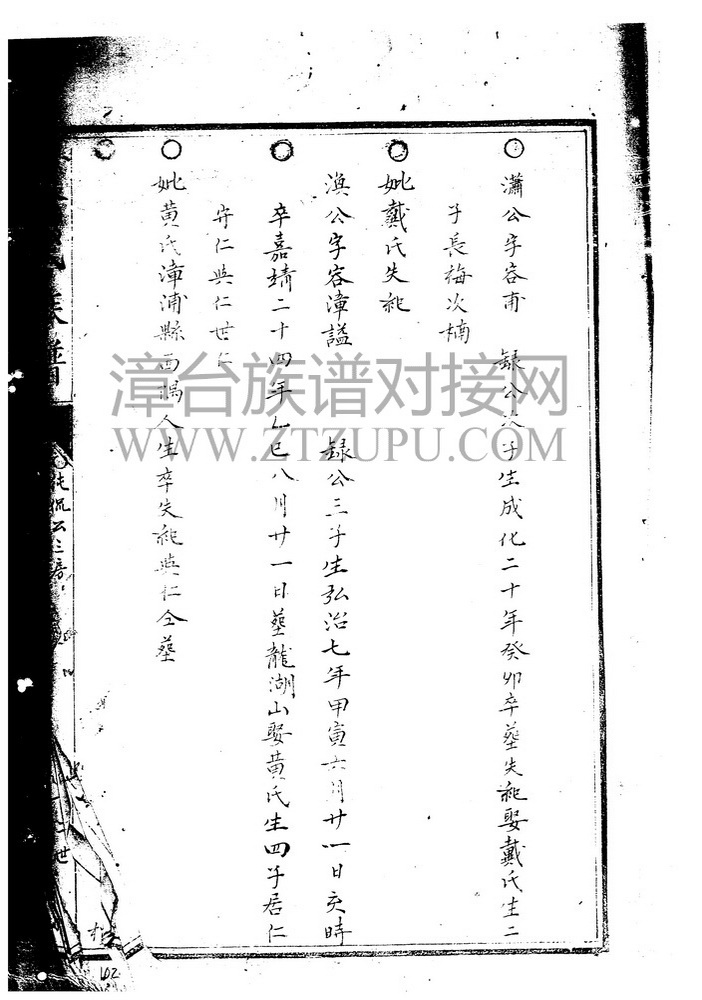 瀟公字容甫 録公次子生成化二十年癸卯卒塟失紀娶戴氏生二
子長梅次楠
妣戴氏失紀
漁公字容漳謚 録公三子生弘治七年甲寅六月廿一日亥時
卒嘉靖二十四年乙巳八月廿一日塟龍湖山娶黄氏生四子居仁
守仁與仁世仁
妣黄氏漳浦縣西隅人生卒失紀與仁仝塟
族譜
公三房
世
102
漳台族谱对接网
WWW.ZTZUPU.COM